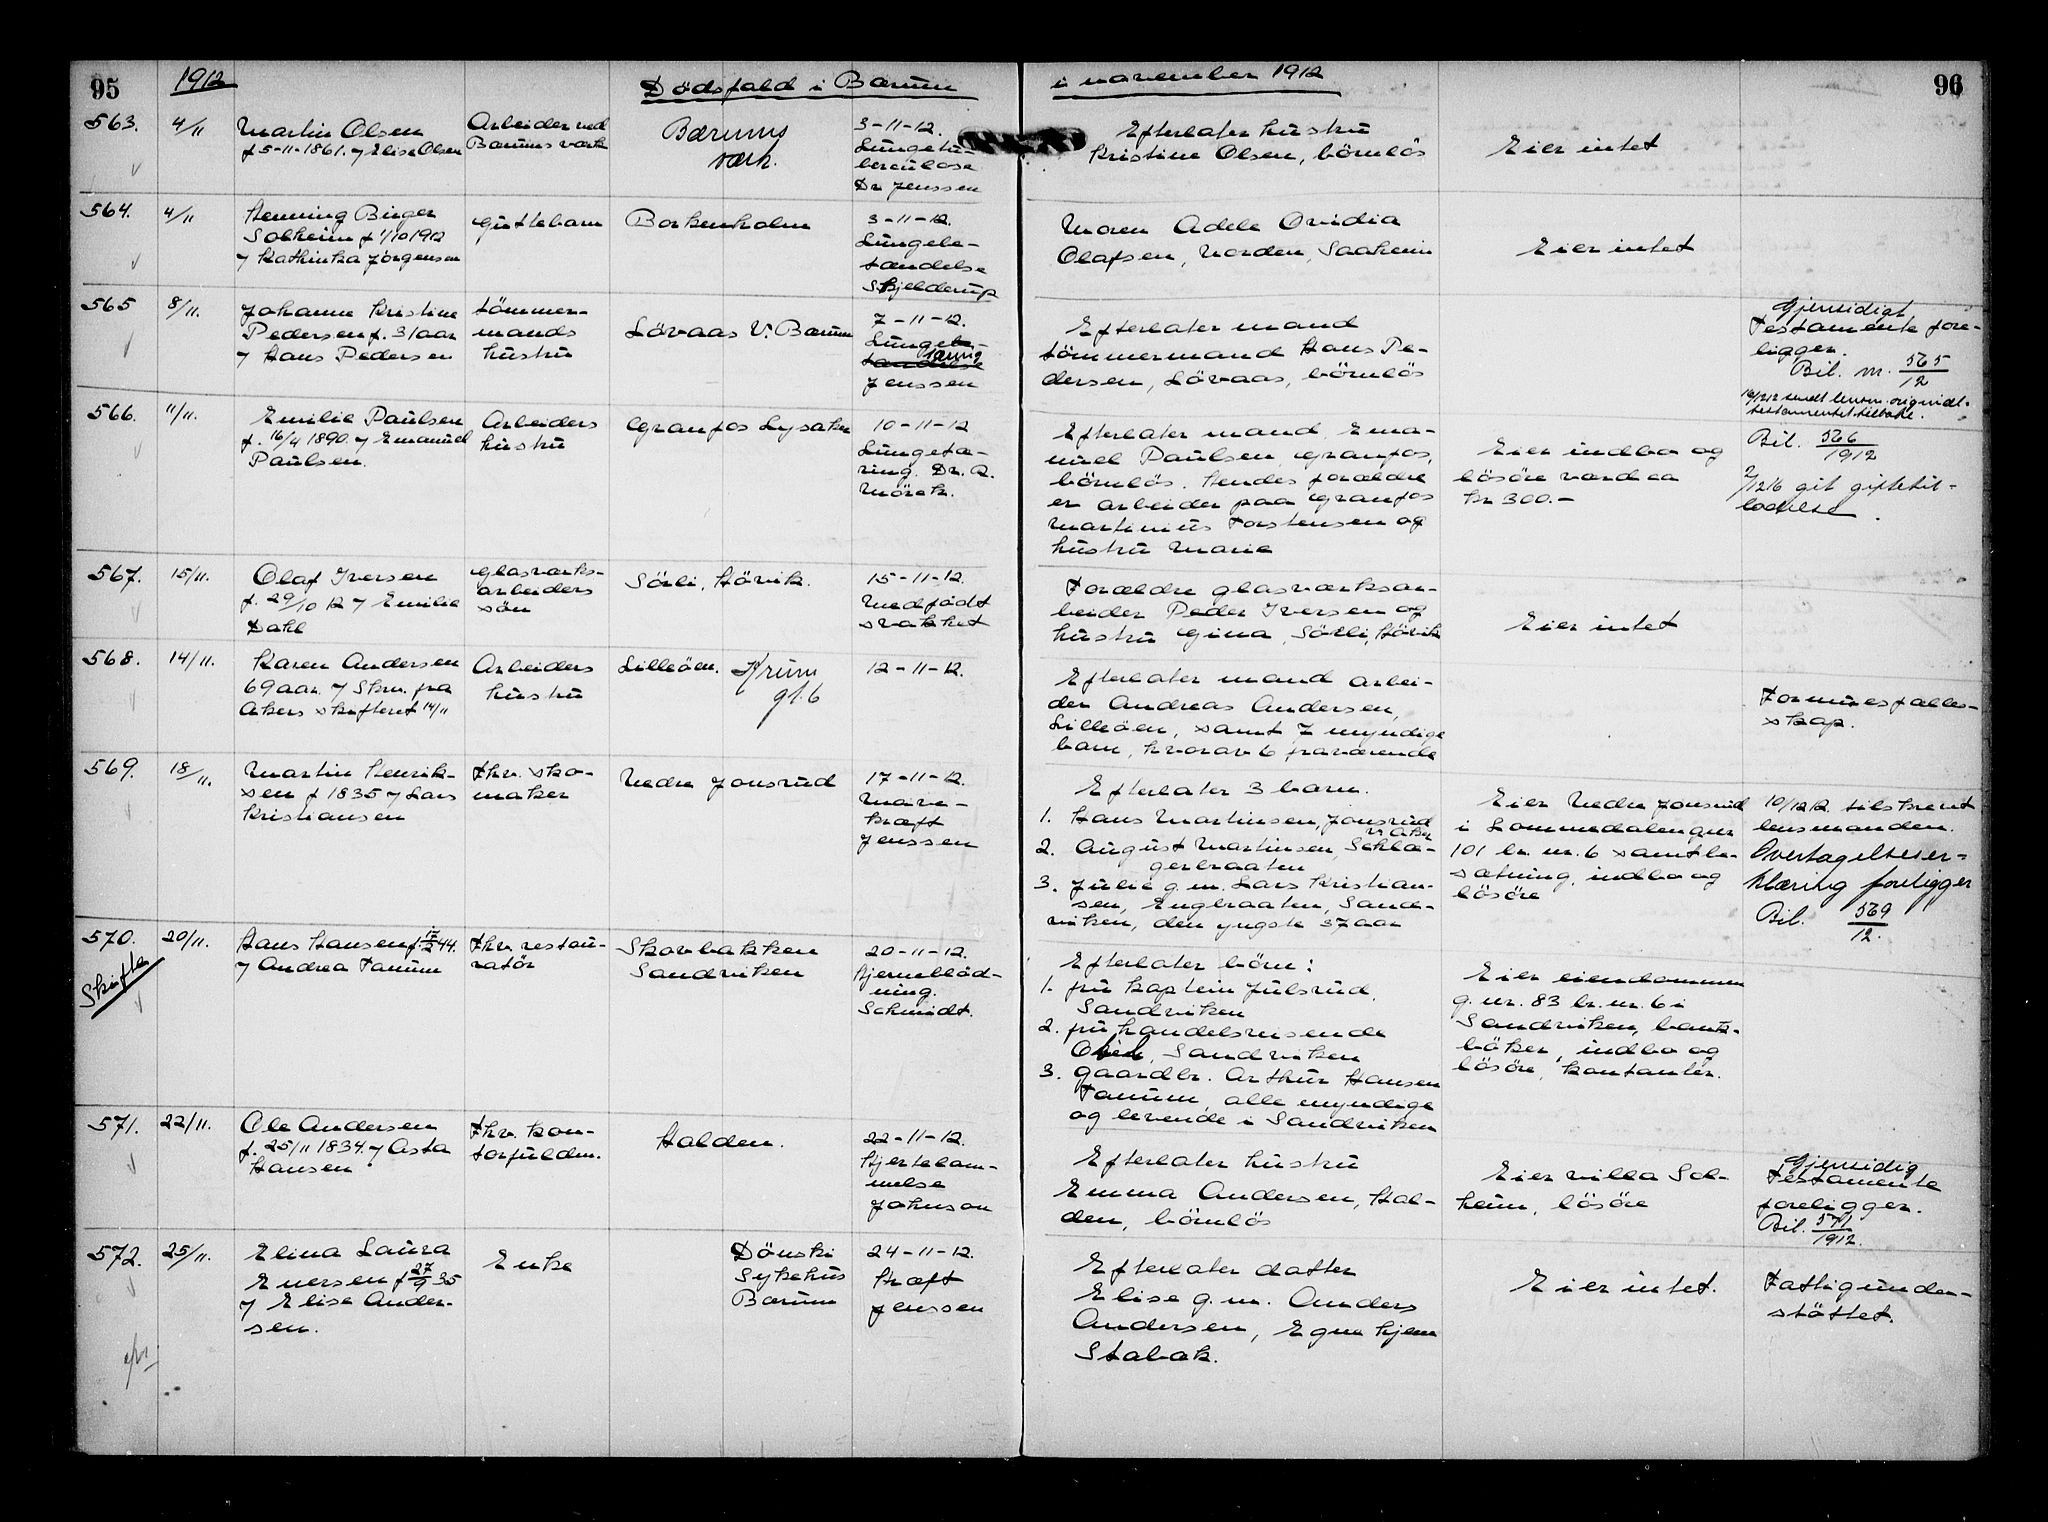 95
1912
Dödsfald i Bærum
i november 1912
96
563.
4/11
Martin Olsen
f 5-11-1861. y Elise Olsen
Arbeider ved
Bærums værk
Bærums
værk.
3-11-12.
Lungetu-
berculose
Dr Jenssen
Efterlater hustru
Kristine Olsen, börnlös
Eier intet
564.
4/11
Henning Birger
Solheim f 1/10 1912
y Kathinka Jørgensen
Guttebarn
Borkenholm
3-11-12.
Lungebe-
tændelse
Skjelderup
Moren Adele Ovidia
Olafsen, Norden, Saaheim
Eier intet
565
8/11.
Johanne Kristine
Pedersen f. 31 aar
y Hans Pedersen
tömmer-
mands
hustru
Lövaas V. Bærum
7-11-12.
Lungebe-
tændelse
tæring
Jenssen
Efterlater mand
tömmermand Hans Pe-
dersen, Lövaas, börnlös
Gjensidigt
Testamente fore-
ligger.
Bil. m. 565/12
testamentet tilbake.
566.
11/11.
Emilie Paulsen
f. 16/4 1890. y Emanuel
Paulsen.
Arbeiders
hustru
Granfos Lysaker
10-11-12
Lungetæ-
ring. Dr. A.
Mörck.
Efterlater mand, Ema-
nuel Paulsen, Granfos,
börnlös. Hendes forældre
er arbeider paa Granfos
Martinius Torstensen og
hustru Marie
Eier indbo og
lösöre værd ca
kr 300.-
Bil. 566/1912
2/12 16 git giftetil-
ladelse.
567.
15/11.
Olaf Iversen
f. 29/10 12 y Emilie
Dahl
Glasværks-
arbeiders
sön
Sörli, Hövik.
15-11-12.
Medfödt
svakhet
Forældre glasværksar-
beider Peder Iversen og
hustru Gina, Sörli, Hövik
Eier intet
568.
14/11.
Karen Andersen
69 aar. y Skm. fra
Akers skifteret 14/11
Arbeiders
hustru
Lilleöen.
12-11-12.
Efterlater mand arbei-
der Andreas Andersen,
Lilleöen, samt 7 myndige
barn, hvorav 6 fraværende
Formuesfælles-
skap.
569.
18/11.
Martin Henrik-
sen f 1835 y Lars
Kristiansen
Fhv. sko-
maker
Nedre Jonsrud
17-11-12.
Mave-
kræft
Jenssen
Efterlater 3 barn.
1. Hans Martinsen, Jonsrud
V. Aker
2. August Martinsen, Seklæ-
gerbraaten
3. Julie g.m. Lars Kristian-
sen, Engbraaten, Sand-
viken, den yngste 37 aar
Eier Nedre Jonsrud
i Lommedalen gnr
101 br. nr. 6 samt be-
sætning, indbo og
lösöre
10/12 12. tilskrevet
lensmanden.
Overtagelseser-
klæring foreligger
Bil. 569/12.
570.
Skifte
20/11.
Hans Hansen f. 17/2 44.
y Andrea Tanum
Fhv. restau-
ratör
Skovbakken
Sandviken
20-11-12.
Hjerneblöd-
ning.
Schmidt.
Efterlater börn:
1. fru kaptein Julsrud,
Sandviken
2. fru handelsreisende
Sandviken
3. gaardbr. Arthur Hansen
Tanum, alle myndige
og levende i Sandviken
Eier eiendommen
g. nr. 83 br. nr. 6 i
Sandviken, bank-
böker, indbo og
lösöre, kontanter.
571.
22/11.
Ole Andersen
f. 25/11 1834. y Asta
Hansen
Fhv. kon-
torfuldm.
Halden.
22-11-12.
Hjertelam-
melse
Johnson
Efterlater hustru
Emma Andersen, Hal-
den, börnlös
Eier villa Sol-
heim, lösöre
Gjensidig
Testamente
foreligger.
Bil. 571/1912.
572.
25/11.
Elina Laura
Evensen f 27/9 35
y Elise Ander-
sen.
Enke
Dönski
Sykehus
Bærum
24-11-12.
Kræft
Jenssen
Efterlater datter
Elise g.m. Anders
Andersen, Egne hjem
Stabæk.
Eier intet.
Fattigunder-
stöttet.